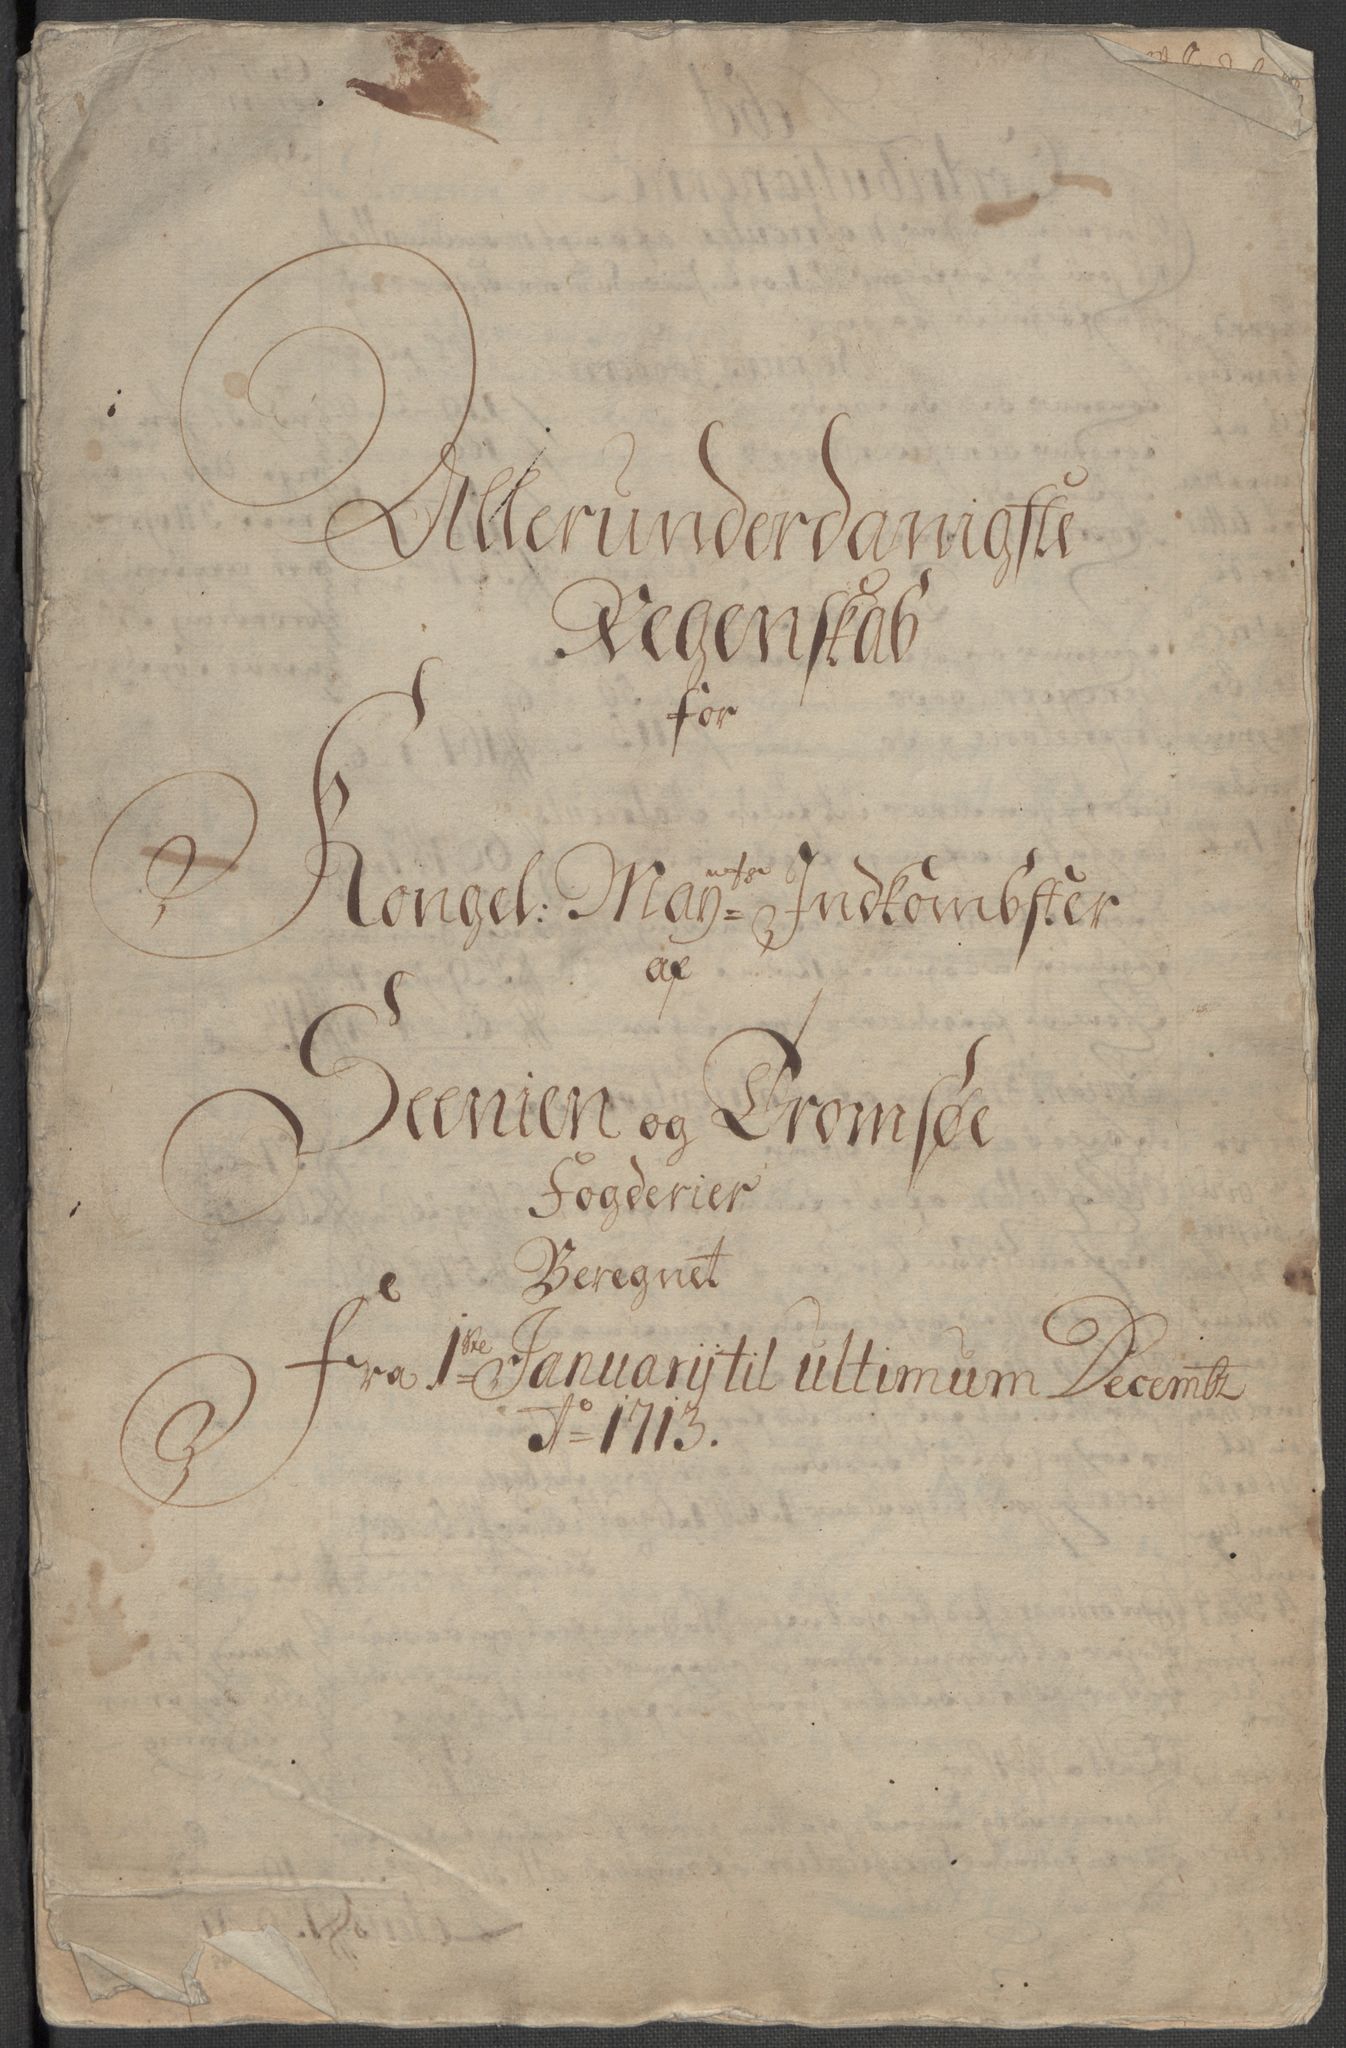 Allerunderdanigste
Regenskab
for
Kongel: May=ts Indkombster
af
Seenien og Tromsøe
Fogderier
Beregnet
fra 1=ste Januarij til ultimum Decembr
Ao= 1713.